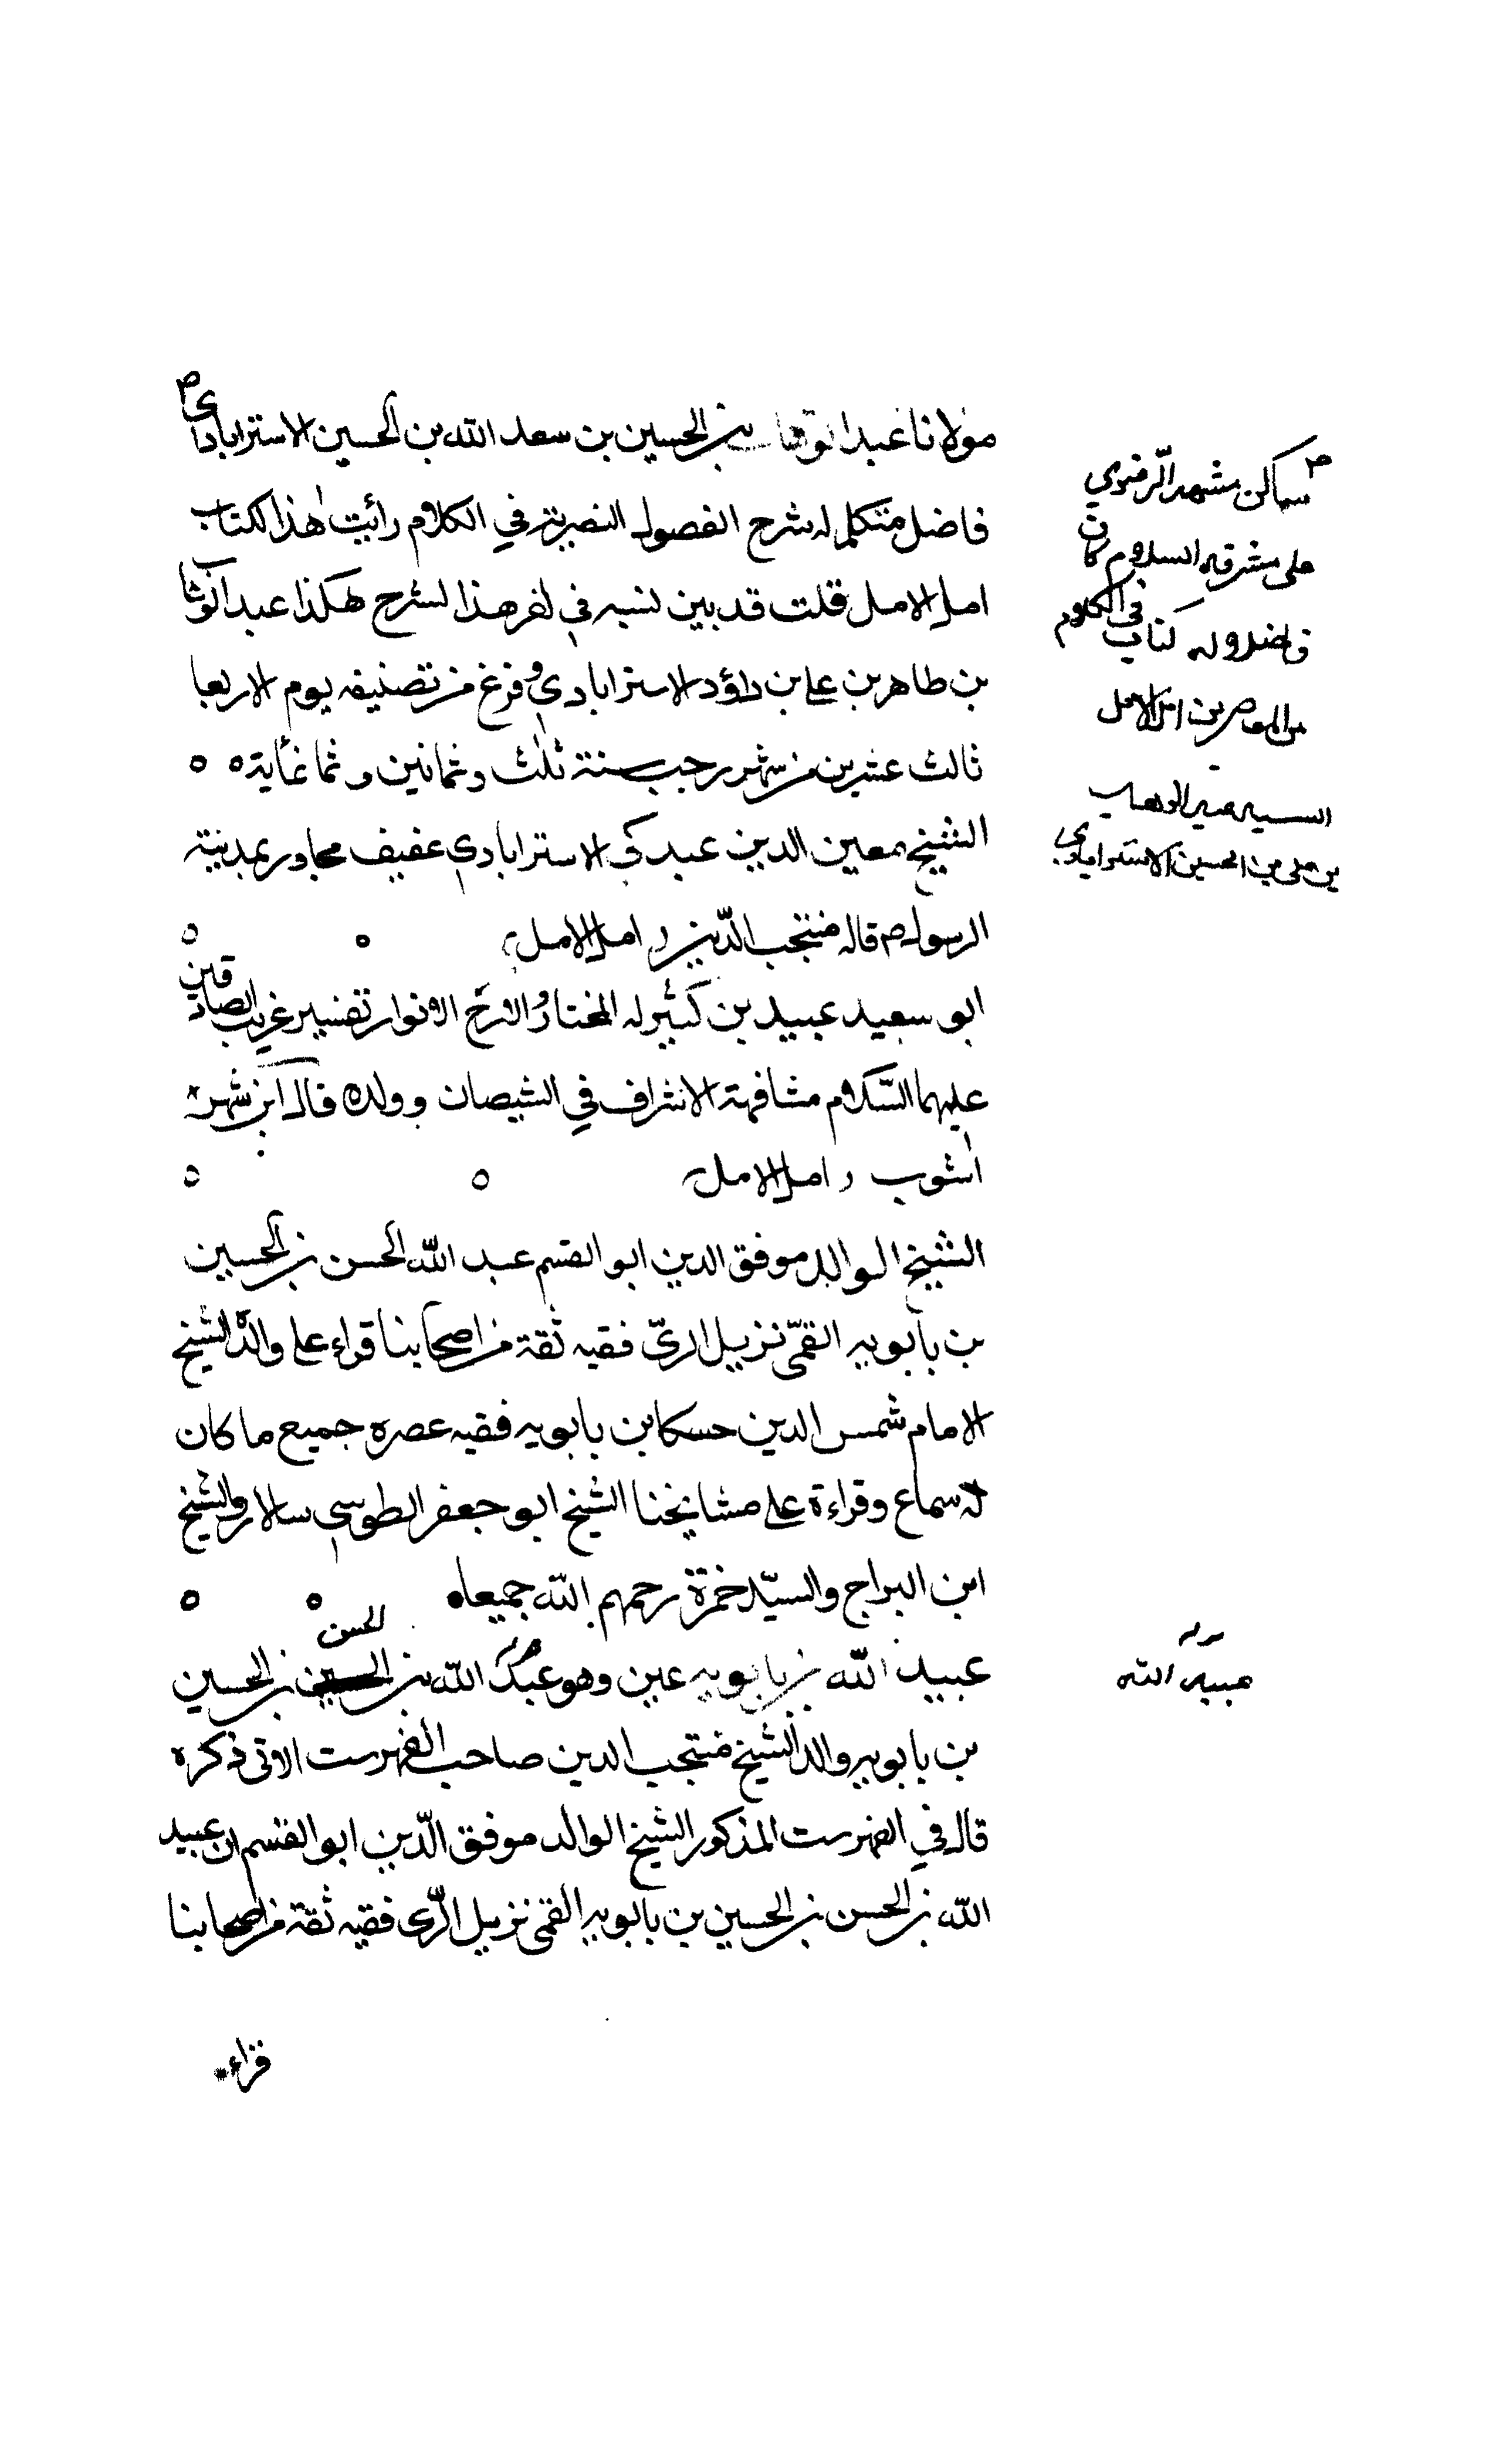 مولانا عبد الوهاب بن الحسين بن سعد الله بن الحسين الاسترابادي
فاضل متكلم له شرح الفصول النصيرية في الكلام رأيت هذا الكتاب
امل الامل قلت قد بين نسبه في اخر هذا الشرح هكذا عبد الوهاب
بن طاهر بن علي بن داؤد الاسترابادي وفرغ من تصنيفه يوم الاربعا
ثالث عشرين من شهر رجب سنة ثلث وثمانين وثمانمأية
الشيخ معين الدين عبدكي الاسترابادي عفيف مجاور بمدينة
الرسول ص قاله منتجب الدين ر امل الامل
ابو سعيد عبيد بن كثير له المختار و التخريج الانوار تفسير غريب الصادقين
عليهما السلام مشافهة الاشراف في الشيصان وولده قال ابن شهر
اشوب ر امل الامل
الشيخ الوالد موفق الدين ابو القسم عبد الله الحسن بن الحسين
بن بابويه القمّي نزيل الريّ فقيه ثقة من اصحابنا قراء على والده الشيخ
الامام شمس الدين حسكا بن بابويه فقيه عصره جميع ما كان
له سماع وقراءة على مشايخنا الشيخ ابو جعفر الطوسي سالار والشيخ
ابن البراج والسيّد حمزة رحمهم الله جميعا
عبيد الله بن بابويه عين وهو عبد الله بن الحسن بن الحسين
بن بابويه والد الشيخ منتجب الدين صاحب الفهرست الاتي ذكره
قال في الفهرست المذكور الشيخ الوالد موفق الدّين ابو القسم ان عبيد
الله بن الحسن بن الحسين بن بابويه القمي نزيل الرّي فقيه ثقة من اصحابنا
قراء
ص ساكن مشهد الرضوي
على مشرفه السلام كان
فاضلا وله كتاب في الكلام
من المعاصرين امل الامل
السيد عبد الوهاب
بن علي بن الحسين الاسترابادي
عبيد الله